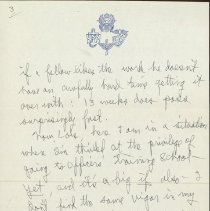 3
if a fellow likes the work he doesn't
have an awfully hard time getting it
over with: 13 weeks does pass
surprisingly fast.
here I am in a situation
where I'm thick of the privilege of
going to Officers' Training School -
yet, and it's a big if also - I
don't find the same vigor in my